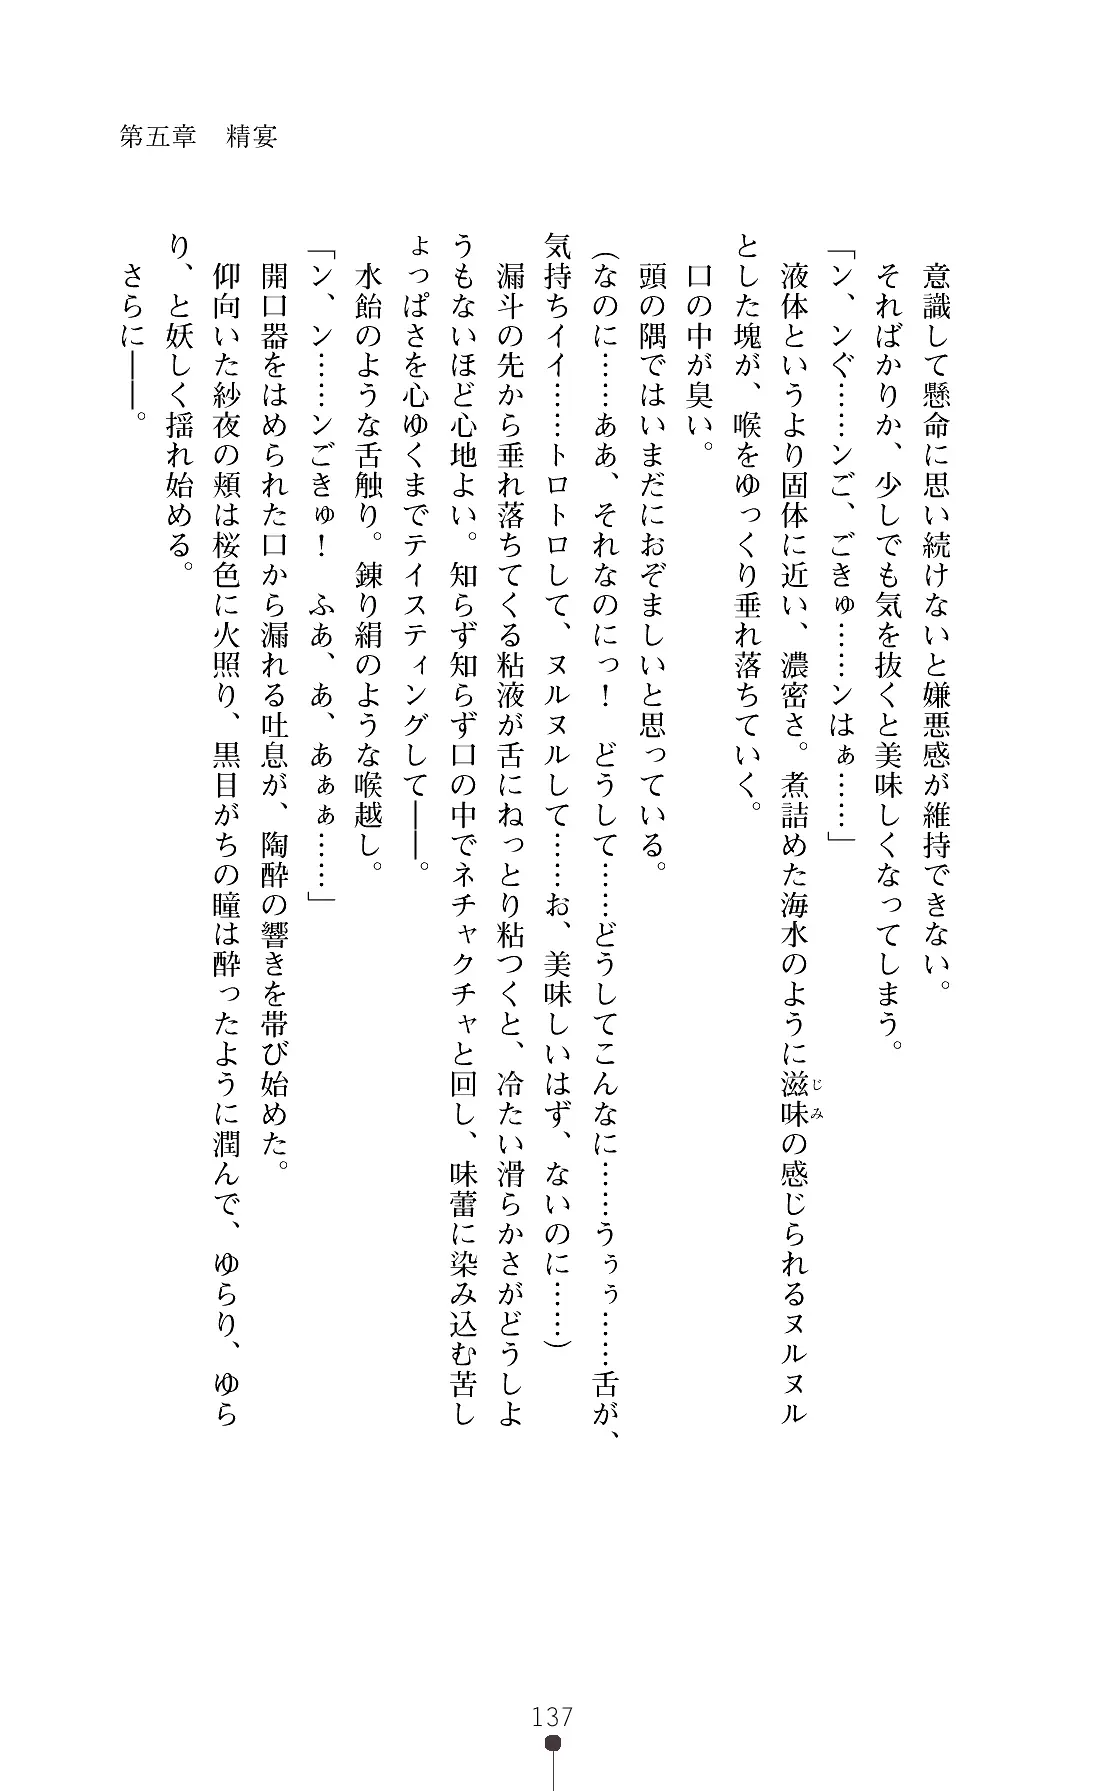 第五章　精宴
意識して懸命に思い続けないと嫌悪感が維持できない。
そればかりか、少しでも気を抜くと美味しくなってしまう。
「ン、ンぐ……ンご、ごきゅ……ンはぁ……」
液体というより固体に近い、濃密さ。煮詰めた海水のように滋味の感じられるヌルヌル
じみ
とした塊が、喉をゆっくり垂れ落ちていく。
口の中が臭い。
頭の隅ではいまだにおぞましいと思っている。
(なのに……ああ、それなのにっ！　どうして……どうしてこんなに……うぅぅ……舌が、
気持ちイイ……トロトロして、ヌルヌルして……お、美味しいはず、ないのに……)
漏斗の先から垂れ落ちてくる粘液が舌にねっとり粘つくと、冷たい滑らかさがどうしよ
うもないほど心地よい。知らず知らず口の中でネチャクチャと回し、味蕾に染み込む苦し
ょっぱさを心ゆくまでテイスティングして――。
水飴のような舌触り。錬り絹のような喉越し。
「ン、ン……ンごきゅ！　ふあ、あ、あぁぁ……」
開口器をはめられた口から漏れる吐息が、陶酔の響きを帯び始めた。
仰向いた紗夜の頬は桜色に火照り、黒目がちの瞳は酔ったように潤んで、ゆらり、ゆら
り、と妖しく揺れ始める。
さらに――。
137